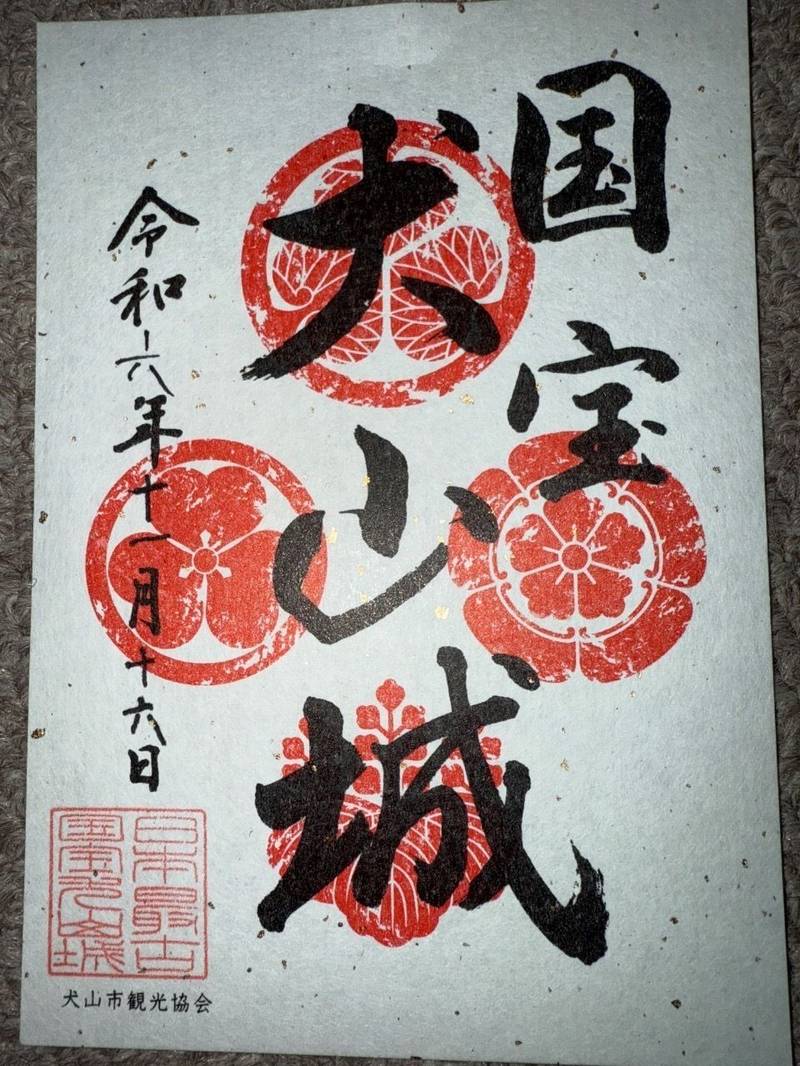 国宝
犬山城
令和六年十一月十六日
日本最古
国宝犬山城
犬山市観光協会